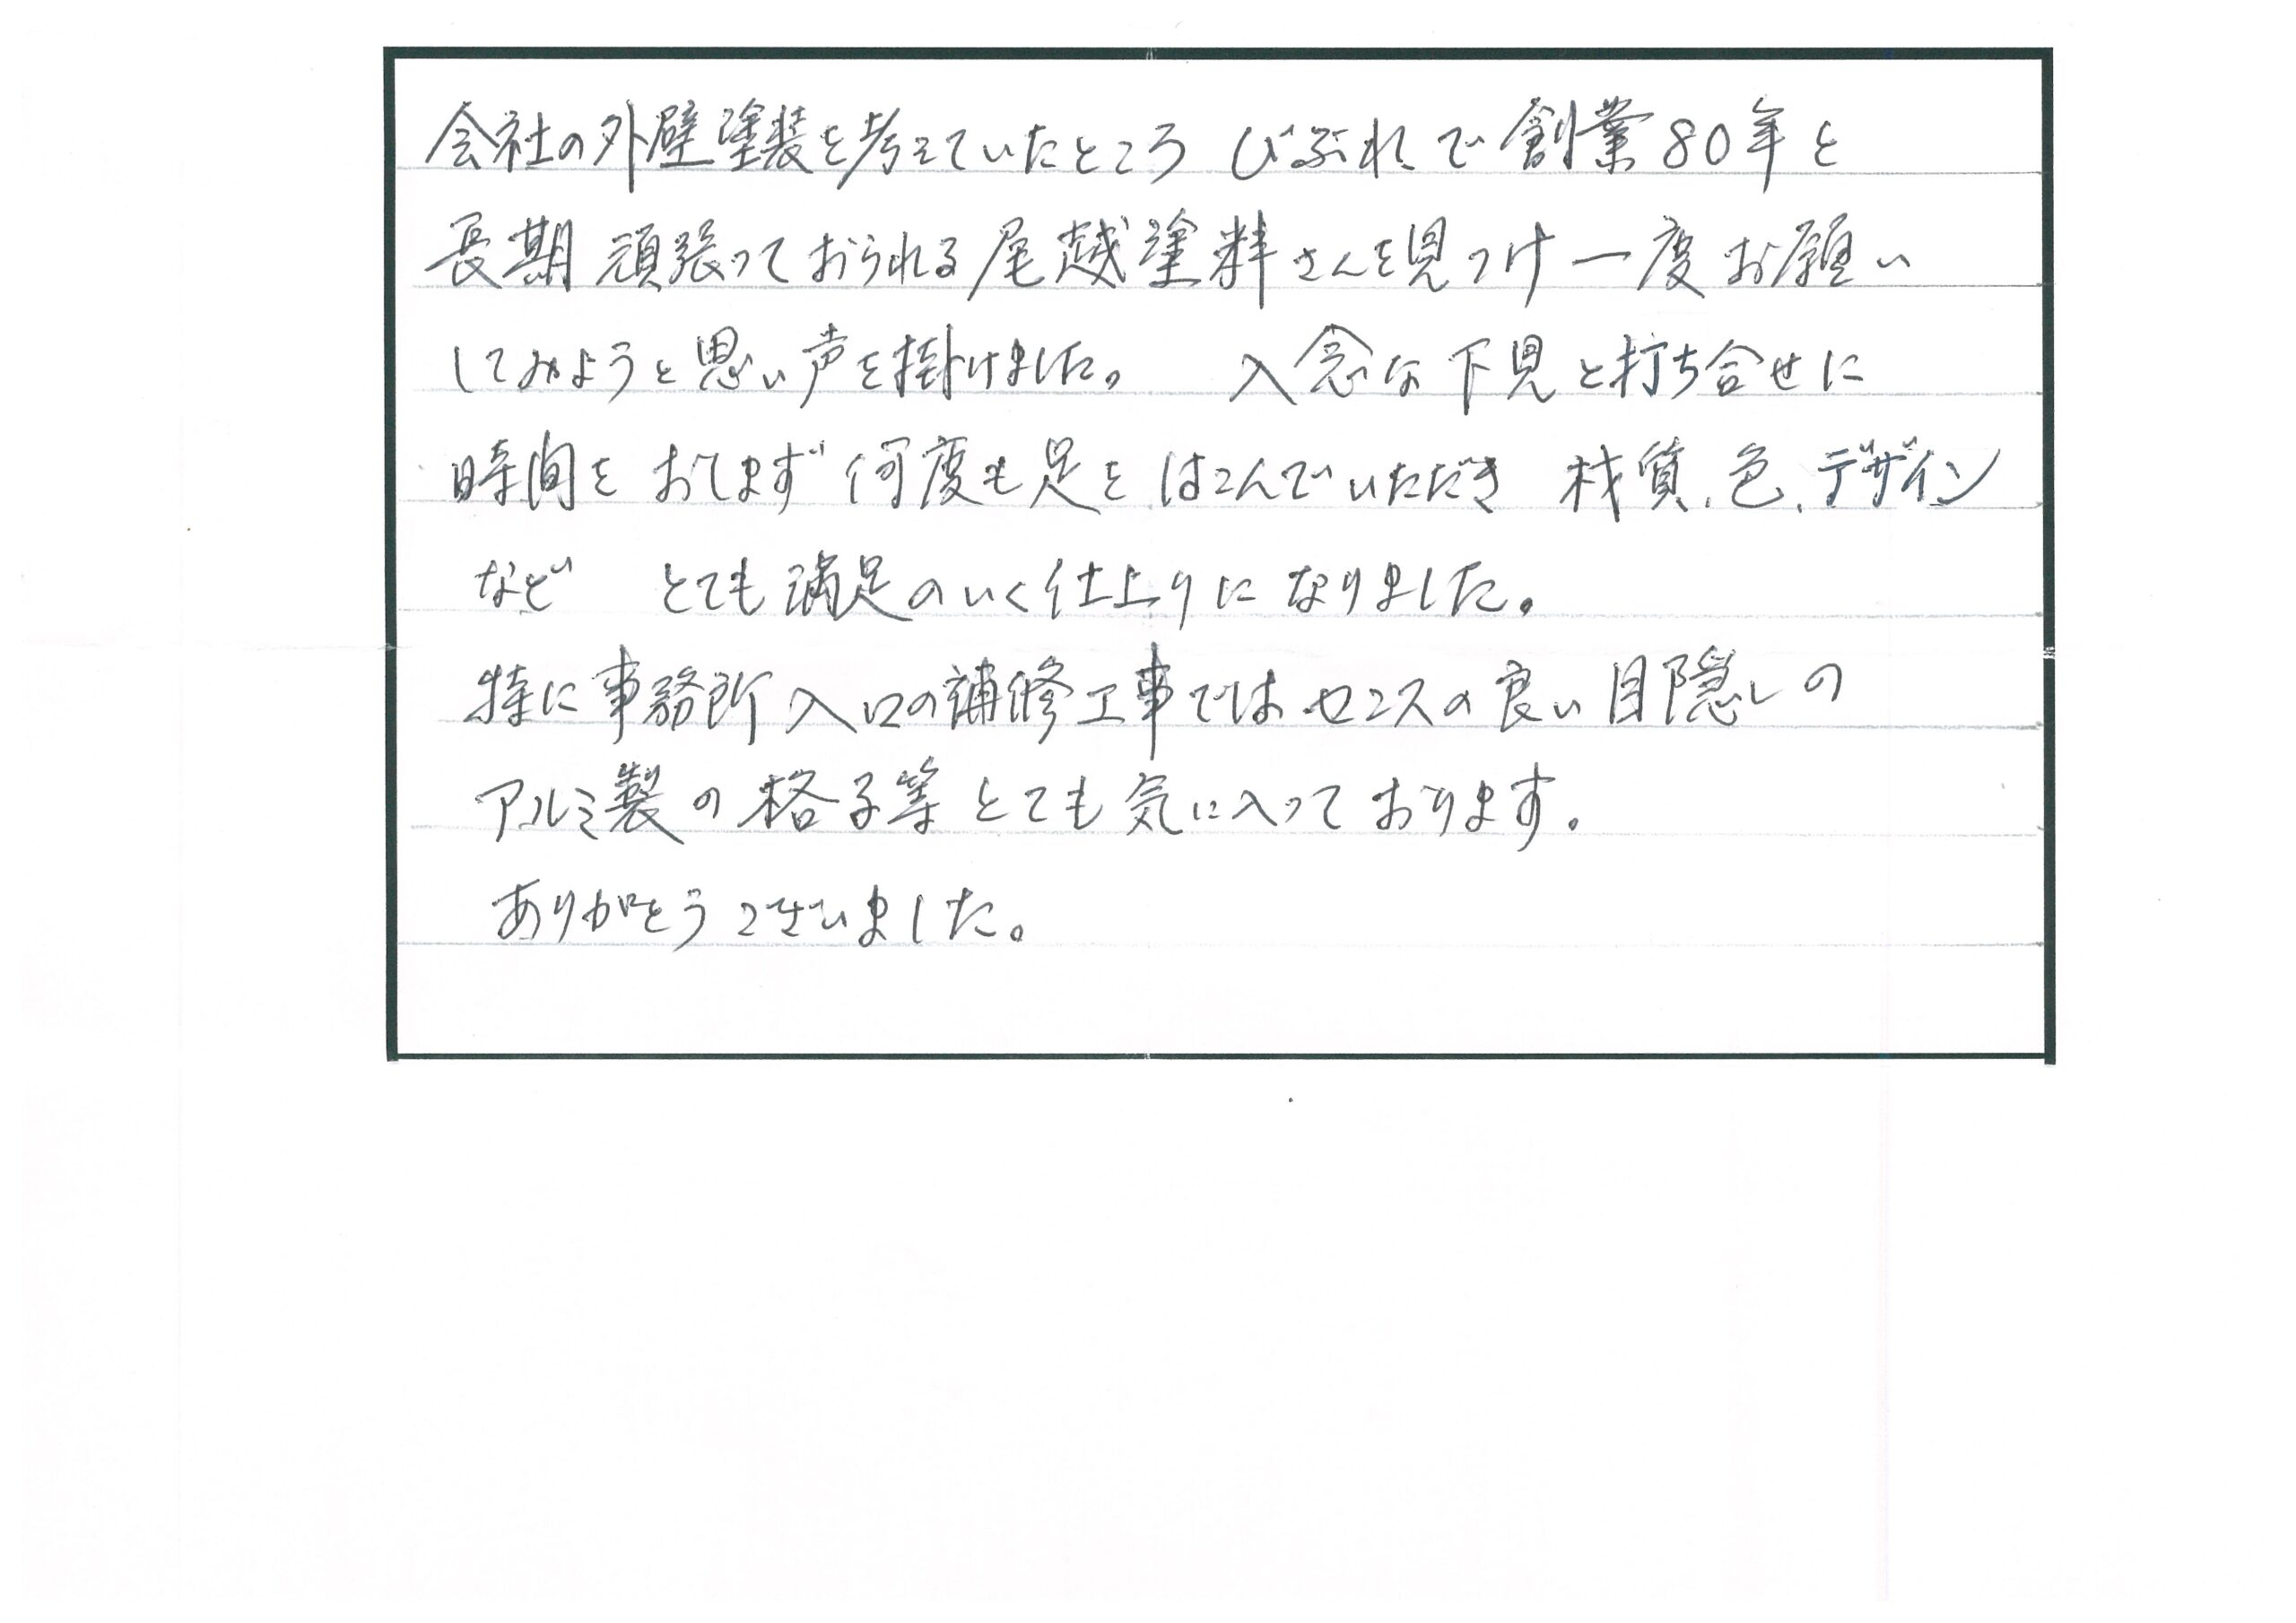 会社の外壁塗装を考えていたところ びぶれで創業80年と
長期頑張っておられる尾越塗料さんを見つけ一度お願い
してみようと思い声を掛けました。 入念な下見と打ち合せに
時間をおしまず何度も足をはこんでいただき 材質、色、デザイン
など とても満足のいく仕上りになりました。
特に事務所入口の補修工事ではセンスの良い目隠しの
アルミ製の格子等とても気に入っております。
ありがとうございました。